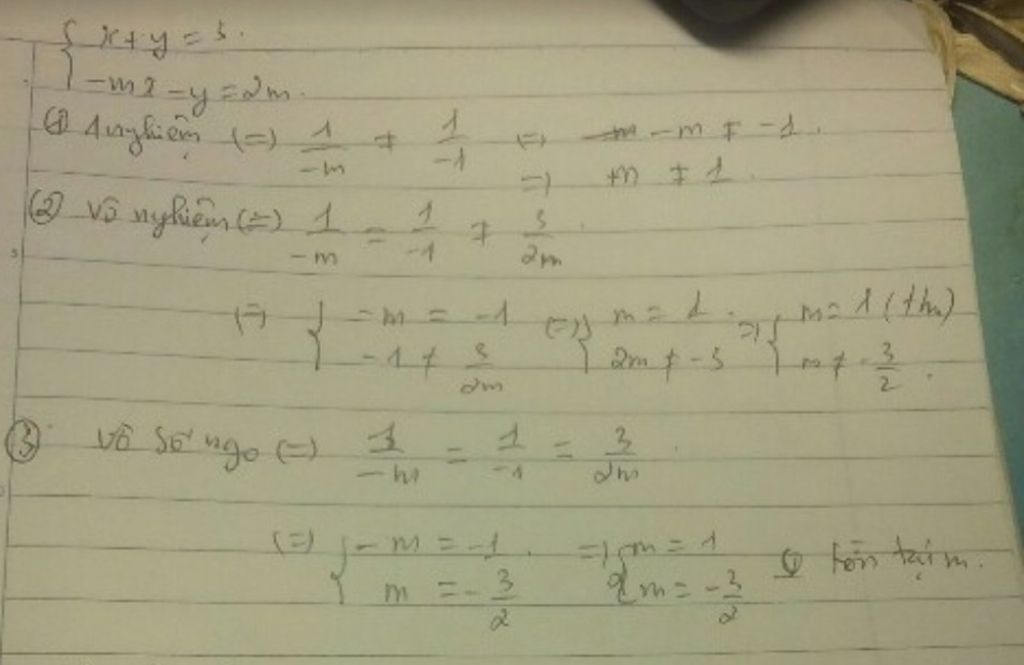 { x + y = 3.
{ -mx - y = 2m.
① 1 nghiệm (=) 1/-m ≠ 1/-1 (=) -m ≠ -1.
=) m ≠ 1.
② Vô nghiệm (=) 1/-m = 1/-1 ≠ 3/2m.
(=) { -m = -1 ; -1 ≠ 3/2m (=) { m = 1. ; 2m ≠ -3 =) { m = 1 (thm) ; m ≠ -3/2.
③ Vô số ngo (=) 1/-m = 1/-1 = 3/2m.
(=) { -m = -1. ; m = -3/2 =) { m = 1 ; m = -3/2 tồn tại m.